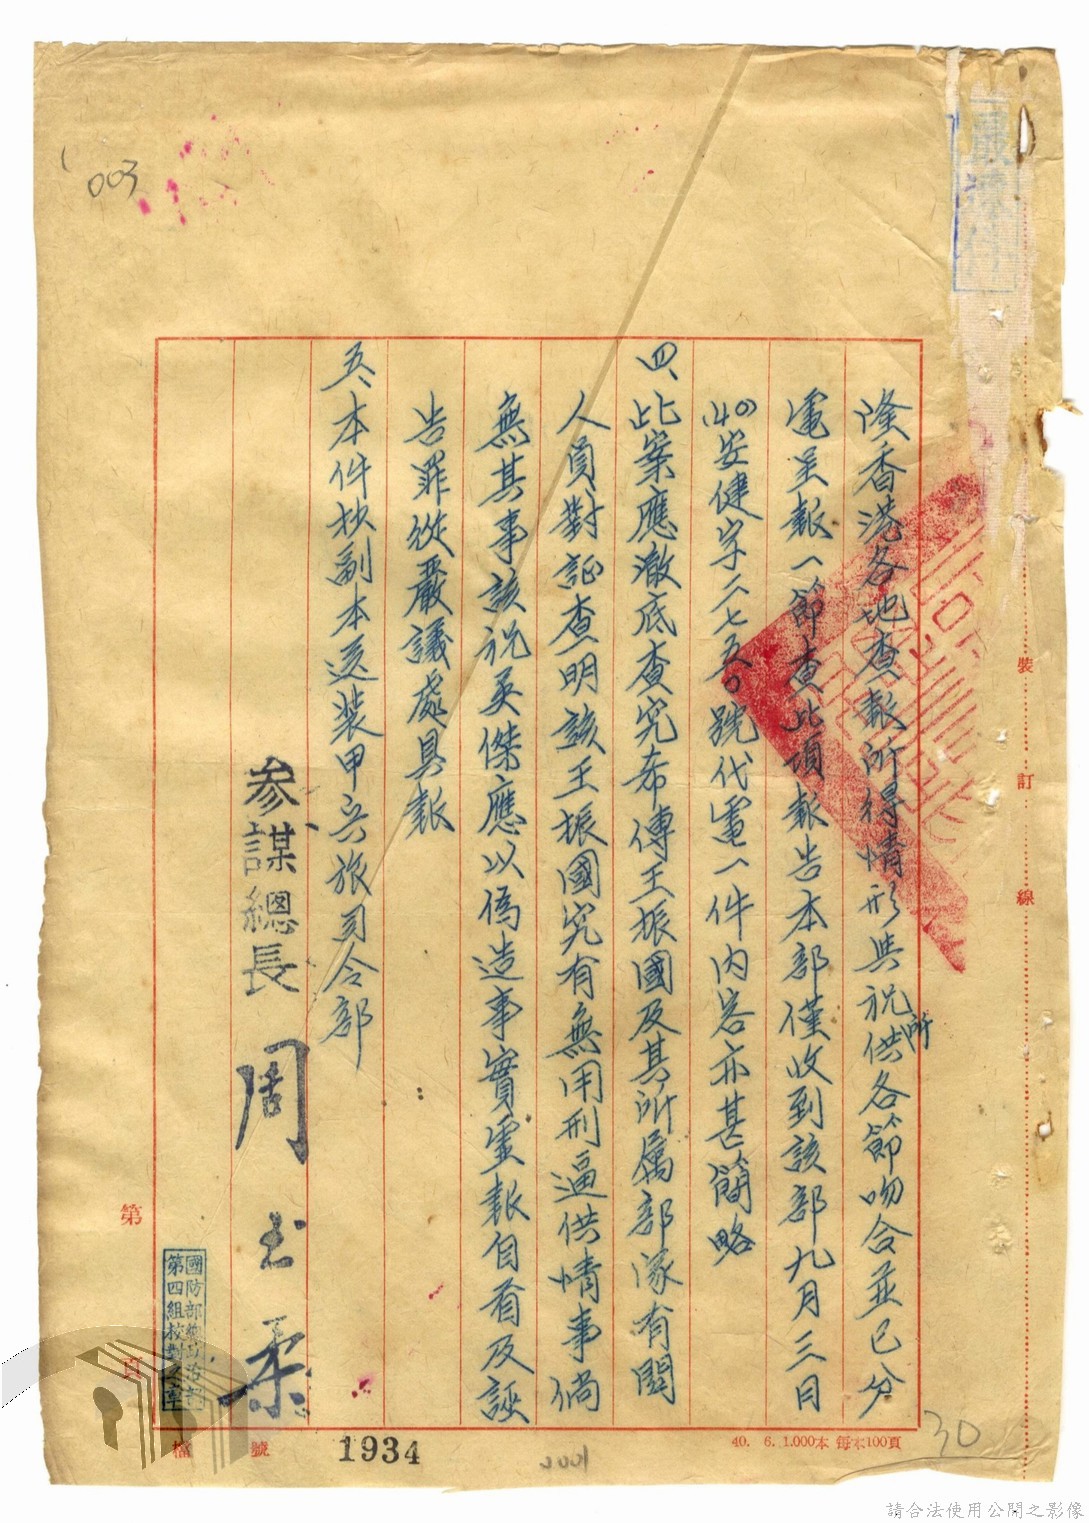 最速件
隆香港各地查報所得情形與祝所供各節吻合並已分
電呈報一節查此項報告本部僅收到該部九月三日
(40)安健字二七五〇號代電一件內容亦甚簡略
四、此案應澈底查究希傳王振國及其所属部隊有關
人員對証查明該王振國究有無用刑逼供情事倘
無其事該祝英傑應以偽造事實虛報自首及誣
告罪從嚴議處具報
五、本件抄副本送裝甲兵旅司令部
參謀總長 周至柔
國防部總政治部
第四組校對之章
裝 訂 線
第 頁
檔 號
1934
40. 6. 1.000本 每本100頁
003
30
請合法使用公開之影像